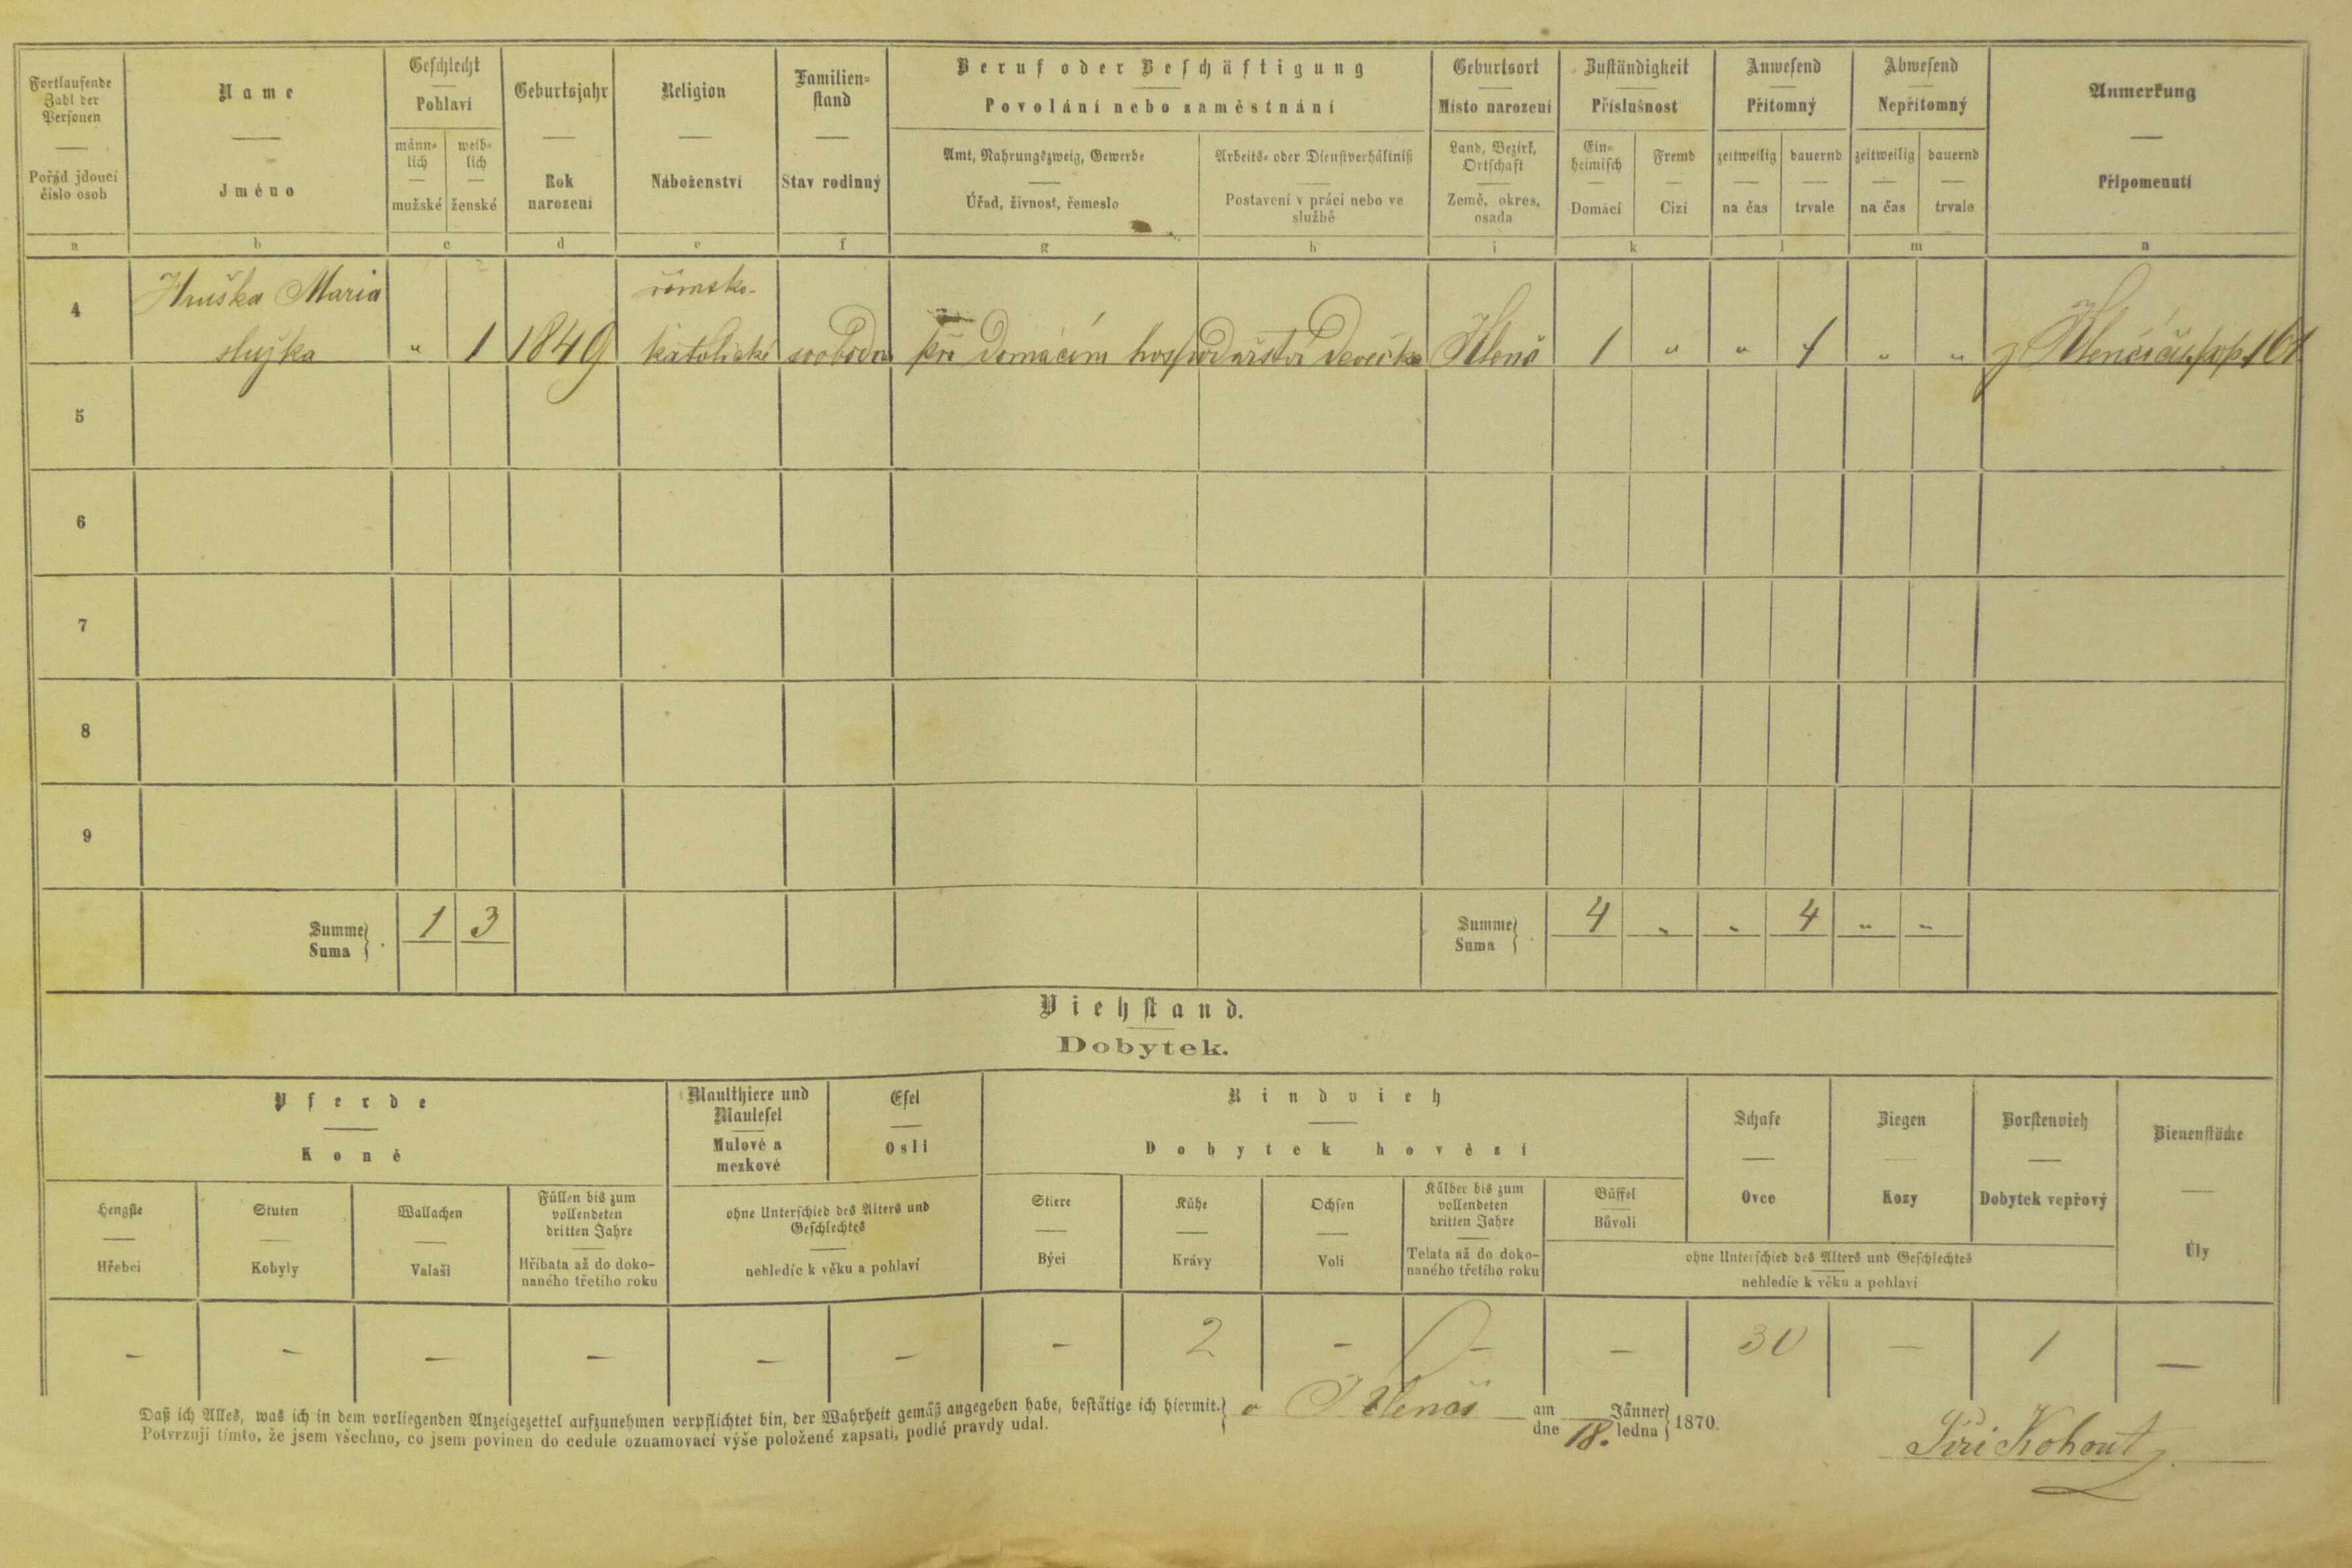 Fortlaufende Zahl der Personen
Pořád jdoucí číslo osob
Name
Jméno
Geschlecht
Pohlaví
männ-lich
mužské
weib-lich
ženské
Geburtsjahr
Rok narození
Religion
Náboženství
Familien-stand
Stav rodinný
Beruf oder Beschäftigung
Povolání nebo zaměstnání
Amt, Nahrungszweig, Gewerbe
Úřad, živnost, řemeslo
Arbeits- oder Dienstverhältniß
Postavení v práci nebo ve službě
Geburtsort
Místo narození
Land, Bezirk, Ortschaft
Země, okres, osada
Zuständigkeit
Příslušnost
Ein-heimisch
Domácí
Fremd
Cizí
Anwesend
Přítomný
zeitweilig
na čas
dauernd
trvale
Abwesend
Nepřítomný
zeitweilig
na čas
dauernd
trvale
Anmerkung
Připomenutí
a b c d e f g h i k l m n
4 Hruška Maria
služka " 1 1849 římsko-
katolické svobodna při domácím hospodařství Devečka Klenč 1 " " 1 " "
5
6
7
8
9
Summe
Suma
1 3
Summe
Suma
4 " " 4 " "
Viehstand.
Dobytek.
Pferde
Koně
Hengste
Hřebci
Stuten
Kobyly
Wallachen
Valaši
Füllen bis zum vollendeten dritten Jahre
Hříbata až do doko-naného třetího roku
Maulthiere und Maulesel
Mulové a mezkové
Esel
Osli
ohne Unterschied des Alters und Geschlechtes
nehledíc k věku a pohlaví
Rindvieh
Dobytek hovězí
Stiere
Býci
Kühe
Krávy
Ochsen
Voli
Kälber bis zum vollendeten dritten Jahre
Telata až do doko-naného třetího roku
Büffel
Bůvoli
Schafe
Ovce
Ziegen
Kozy
Borstenvieh
Dobytek vepřový
ohne Unterschied des Alters und Geschlechtes
nehledíc k věku a pohlaví
Bienenstöcke
Úly
– – – – – – – 2 – – – 30 – 1 –
Daß ich Alles, was ich in dem vorliegenden Anzeigezettel aufzunehmen verpflichtet bin, der Wahrheit gemäß angegeben habe, bestätige ich hiermit.
Potvrzuji tímto, že jsem všechno, co jsem povinen do cedule oznamovací výše položené zapsati, podlé pravdy udal.
am
dne
18.
Jänner
ledna
1870.
Jiří Kohout